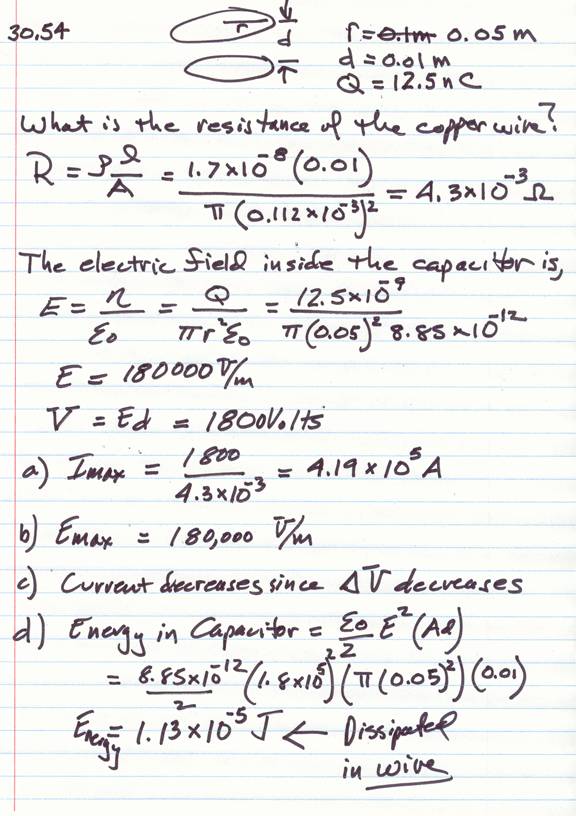 30.54
r
d
r = 0.1m 0.05 m
d = 0.01 m
Q = 12.5 n C
What is the resistance of the copper wire?
R = ρ l/A = 1.7×10^-8 (0.01) / π (0.112×10^-3)^2 = 4.3×10^-3 Ω
The electric field inside the capacitor is,
E = η/ε0 = Q/πr^2ε0 = 12.5×10^-9 / π(0.05)^2 8.85×10^-12
E = 180000 V/m
V = Ed = 1800 Volts
a) Imax = 1800 / 4.3×10^-3 = 4.19 × 10^5 A
b) Emax = 180,000 V/m
c) Current decreases since ΔV decreases
d) Energy in Capacitor = ε0/2 E^2 (Ad)
= 8.85×10^-12/2 (1.8×10^5)^2 (π(0.05)^2)(0.01)
Energy = 1.13×10^-5 J ← Dissipated
in wire